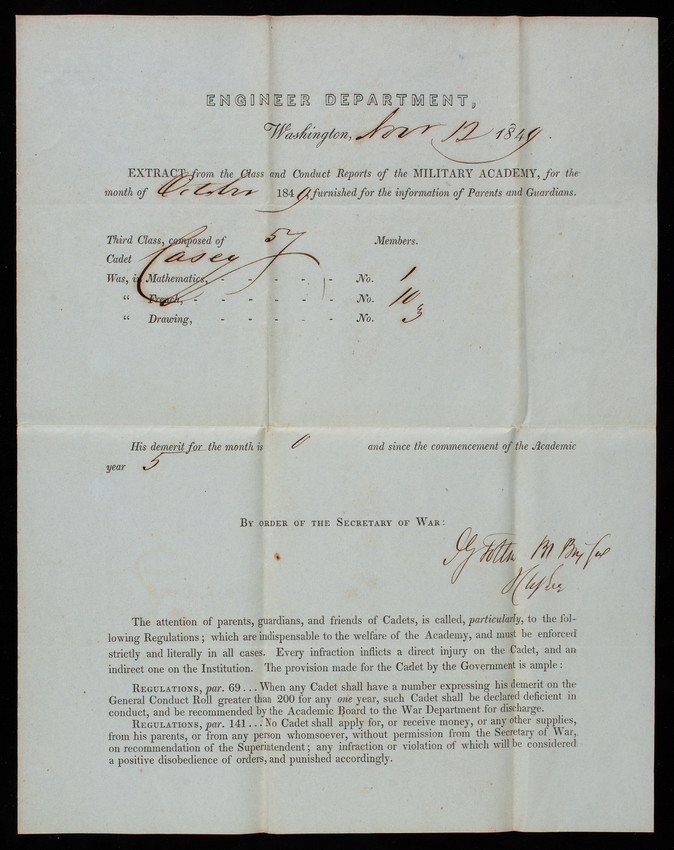 ENGINEER DEPARTMENT,
Washington, Novr 12 1849.
EXTRACT from the Class and Conduct Reports of the MILITARY ACADEMY, for the
month of October 1849, furnished for the information of Parents and Guardians.
Third Class, composed of 57 Members.
Cadet Casey
Was, in Mathematics, - - - - - No. 1
“ French, - - - - - - No. 10
“ Drawing, - - - - - No. 3
His demerit for the month is 0 and since the commencement of the Academic
year 5
By order of the Secretary of War:
J G Totten Bt Brig Genl
The attention of parents, guardians, and friends of Cadets, is called, particularly, to the fol-
lowing Regulations; which are indispensable to the welfare of the Academy, and must be enforced
strictly and literally in all cases. Every infraction inflicts a direct injury on the Cadet, and an
indirect one on the Institution. The provision made for the Cadet by the Government is ample:
Regulations, par. 69...When any Cadet shall have a number expressing his demerit on the
General Conduct Roll greater than 200 for any one year, such Cadet shall be declared deficient in
conduct, and be recommended by the Academic Board to the War Department for discharge.
Regulations, par. 141...No Cadet shall apply for, or receive money, or any other supplies,
from his parents, or from any person whomsoever, without permission from the Secretary of War,
on recommendation of the Superintendent; any infraction or violation of which will be considered
a positive disobedience of orders, and punished accordingly.